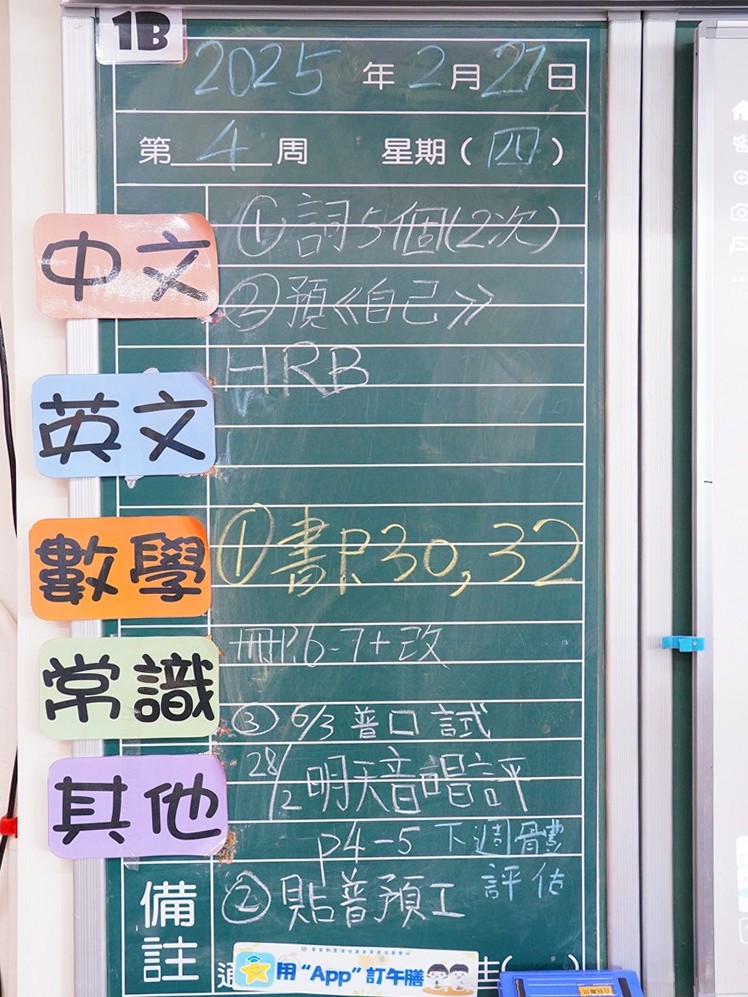 1B
2025 年 2 月 27 日
第 4 周 星期 ( 四 )
中文 ① 詞5個(2次)
② 預《自己》
英文 HRB
數學 ① 書P.30, 32
常識 冊P.6-7+改
③ 6/3 普口試
其他 28/2 明天音唱評
p4-5 下週體
評估
備註 ② 貼普預工
通
用 "App" 訂午膳
(